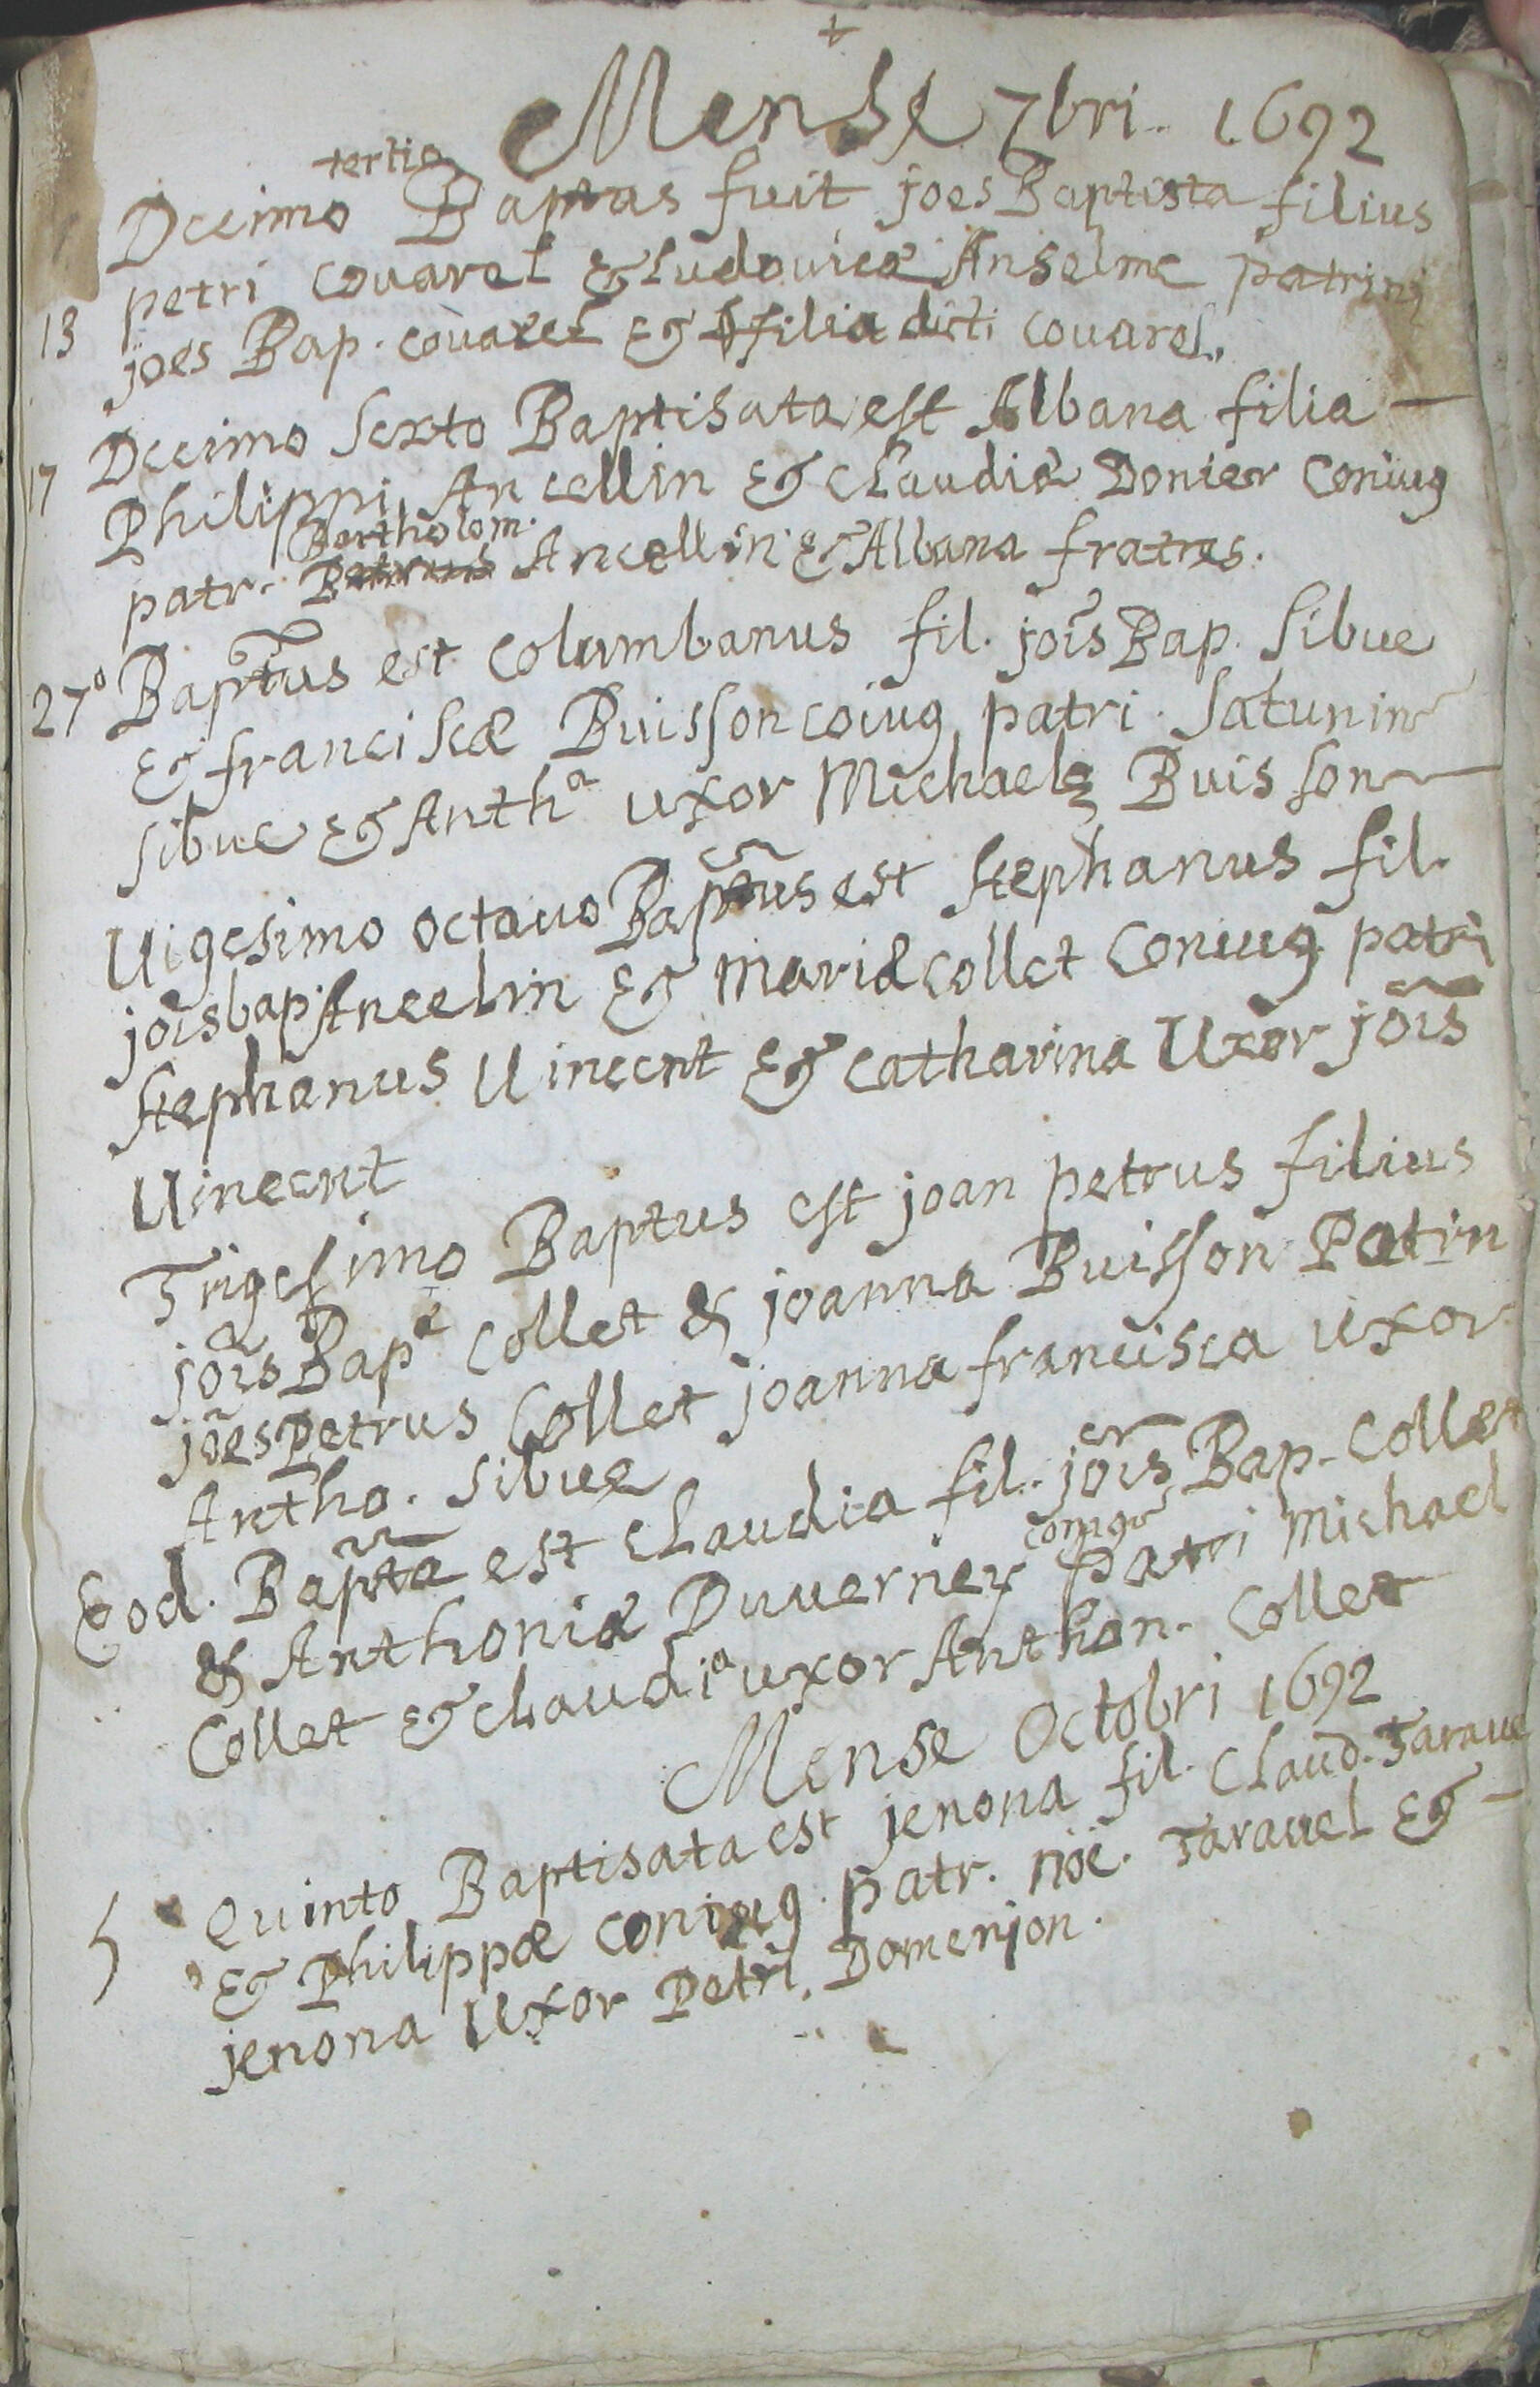 Mense 7bri. 1692
tertio
Decimo Baptus fuit joes Baptista filius
petri couarel & Ludouicæ Anselme patrini
13 joes Bap. couarel & filia dicti couarel.
17 Decimo sexto Baptisata est Albana filia —
Philippi Ancellin & Claudiæ Donier Coniug
Bertholom.
patr. Ancellin & Albana fratres.
27° Baptus est Columbanus fil. jois Bap. Sibue
& francisæ Buisson coiug patri. Satunin
Sibue & Antha uxor Michaelis Buisson
Uigesimo octauo Baptus est Stephanus fil.
jois bap. Ancelin & Mariæ Collet Coniug patri
Stephanus Uincent & Catharina Uxor jois
Uincent
Trigesimo Baptus est joan petrus filius
jois Bapæ Collet & joanna Buisson Patrin
joes Petrus Collet joanna francisca uxor
Antho. Sibue
Eod. Bapta est Claudia fil. jois Bap. Collet
coniug
& Anthoniæ Duuerney Patri Michael
Collet & Claudia uxor Anthon. Collet
Mense Octobri 1692
5 Quinto Baptisata est jenona fil. Claud. Taraue
& Philippæ coniug. patr. noë. Tarauel & —
jenona Uxor Petri. Domenjon.